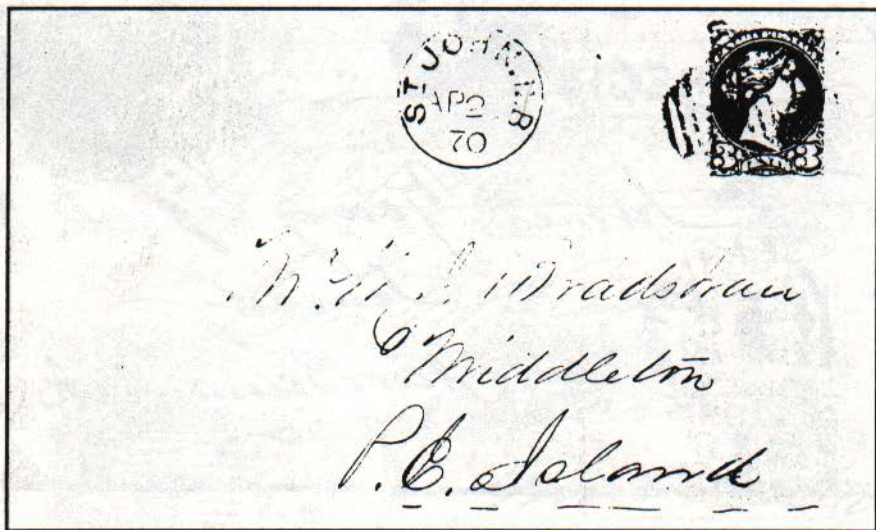 ST JOHN. N.B
AP 2
70
3 3
Bradshaw
Middleton
P. E. Island